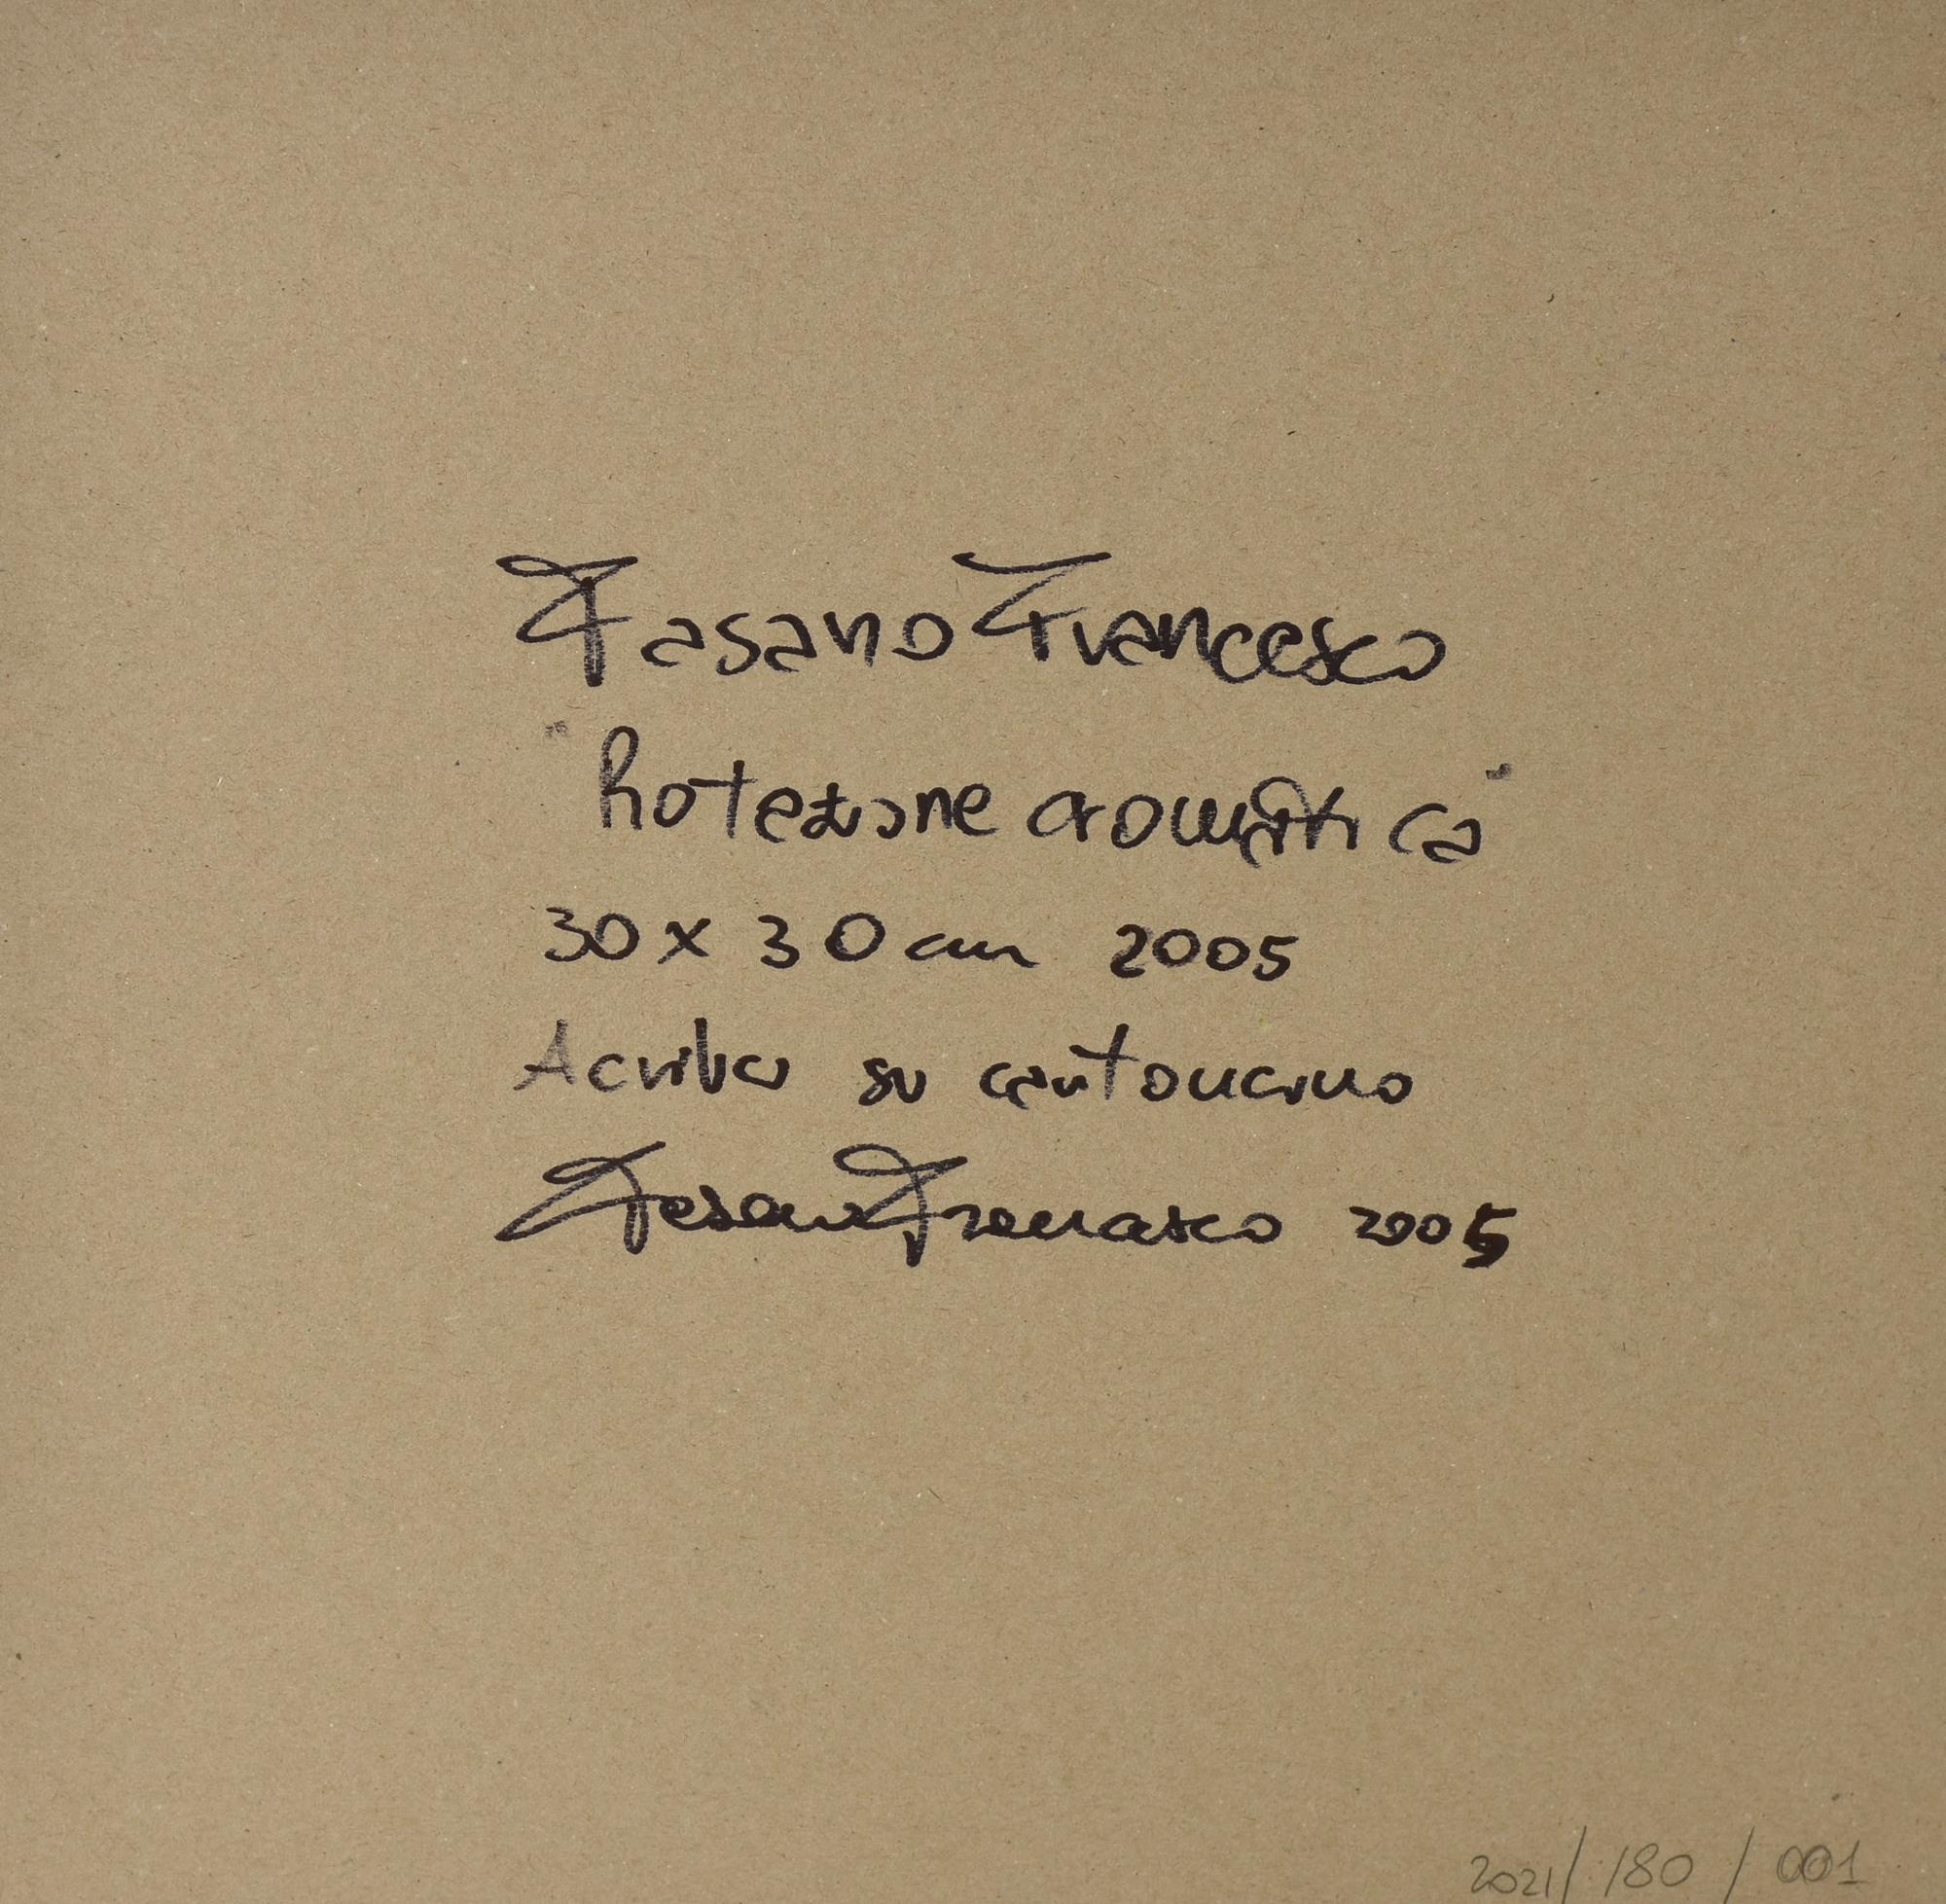 Fasano Francesco
"Rotazione cromatica"
30 x 30 cm 2005
Acrilico su cartoncino
Fasano Francesco 2005
2021/180/001